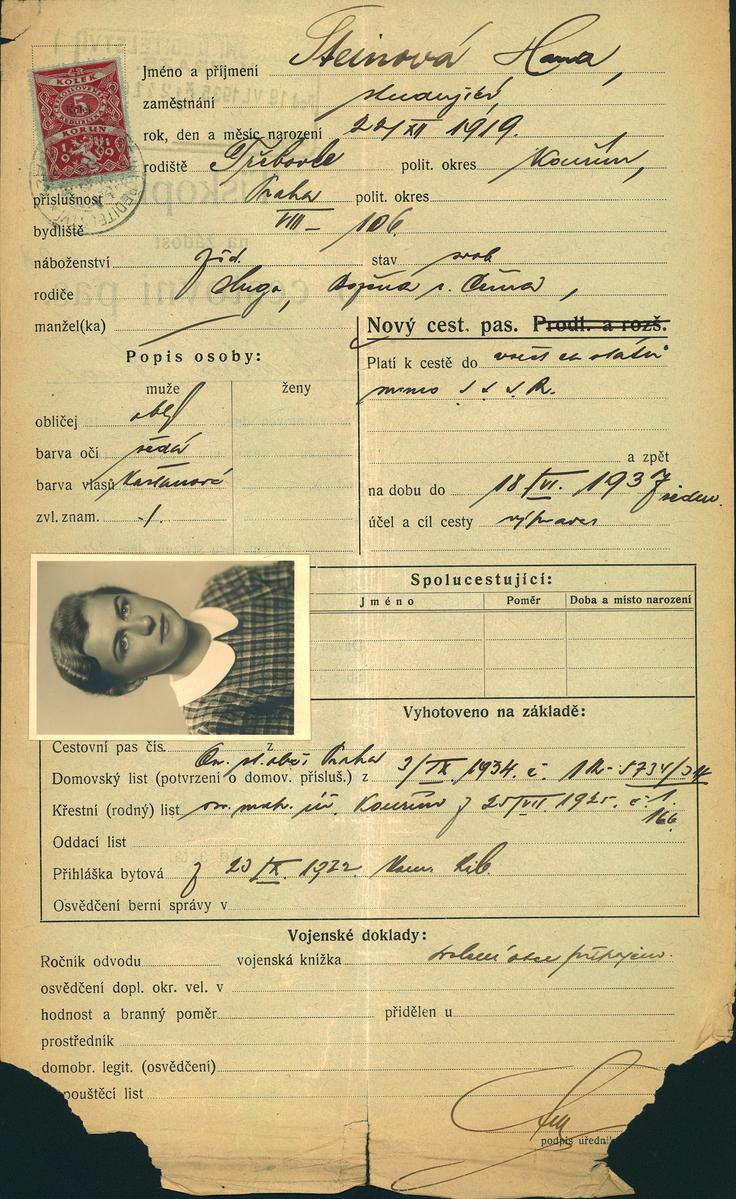 KOLEK
5
KORUN
Jméno a příjmení Steinová Hana,
zaměstnání studující
rok, den a měsíc narození 22/XII 1919.
rodiště Třebovle polit. okres Kouřim,
příslušnost Praha polit. okres
bydliště VIII – 106.
náboženství žid. stav svob
rodiče Hugo,
manžel(ka)
Nový cest. pas. Prodl. a rozš.
Popis osoby:
Platí k cestě do všech ev. států
muže ženy
mimo S.S.S.R.
obličej obl
barva očí šedá
a zpět
barva vlasů Kaštanové
na dobu do 18/VI. 1937
zvl. znam. ./.
účel a cíl cesty
Spolucestující:
Jméno Poměr Doba a místo narození
Vyhotoveno na základě:
Cestovní pas čís. z
Domovský list (potvrzení o domov. přísluš.) z Praha 3/IX. 1934. č.
Křestní (rodný) list Kouřim z 25/VII 1925. č. 1.
166.
Oddací list
Přihláška bytová z 20/IX. 1922. Lib.
Osvědčení berní správy v
Vojenské doklady:
Ročník odvodu vojenská knížka svolení otce připojeno.
osvědčení dopl. okr. vel. v
hodnost a branný poměr přidělen u
prostředník
domobr. legit. (osvědčení)
pouštěcí list
podpis úředník